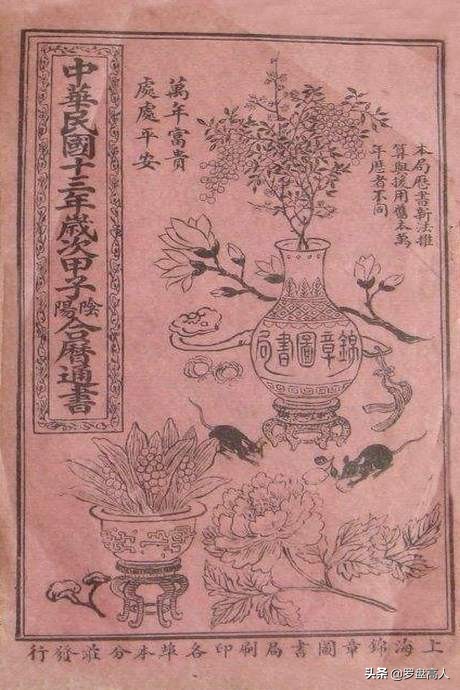 本局曆書新法推
算與援用舊本萬
年曆者不同
萬年富貴
處處平安
中華民國十三年歲次甲子陰陽合曆通書
錦章圖書局
上海錦章圖書局刷印各埠本分莊發行
头条 @罗盘高人